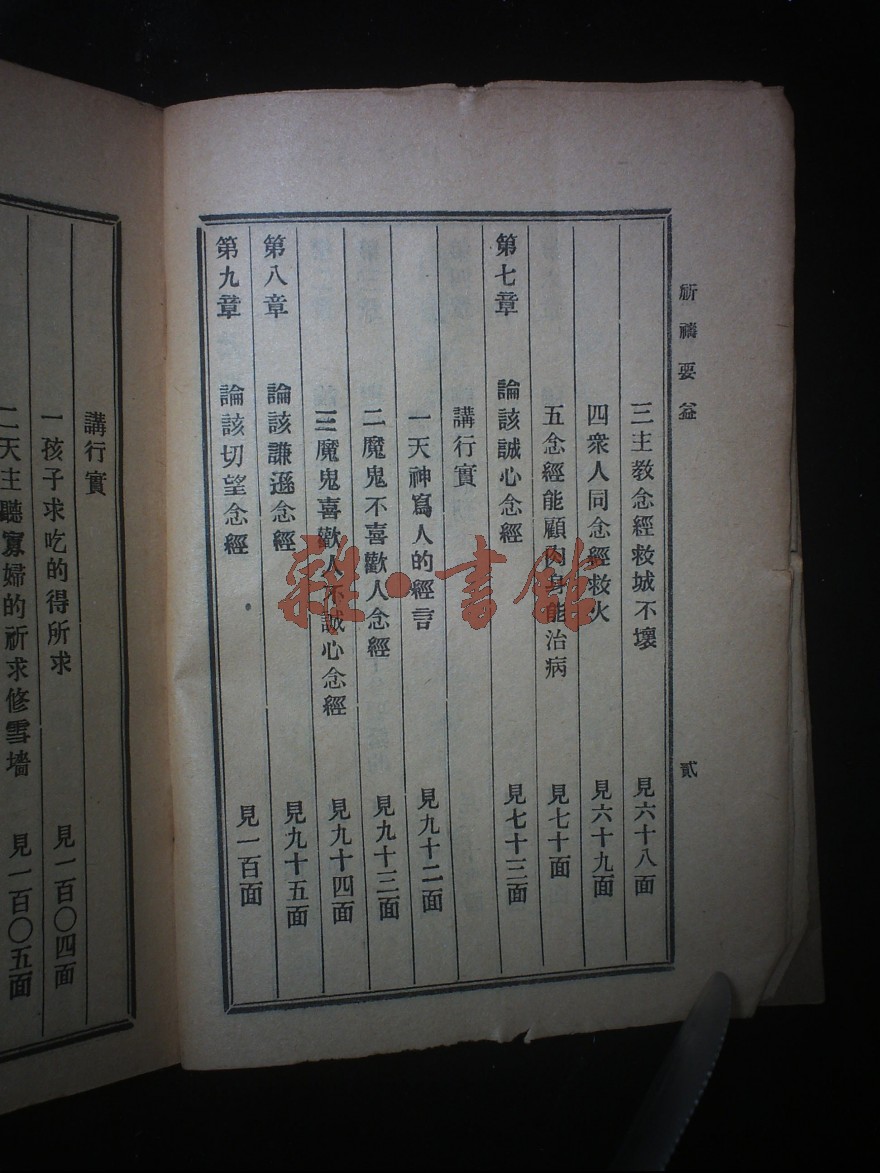 祈禱要益
貳
三主教念經救城不壞 見六十八面
四衆人同念經救火 見六十九面
五念經能顧肉身能治病 見七十面
第七章 論該誠心念經 見七十三面
講行實
一天神寫人的經言 見九十二面
二魔鬼不喜歡人念經 見九十三面
三魔鬼喜歡人不誠心念經 見九十四面
第八章 論該謙遜念經 見九十五面
第九章 論該切望念經 見一百面
講行實
一孩子求吃的得所求 見一百〇四面
二天主聽寡婦的祈求修雪墻 見一百〇五面
雜·書館